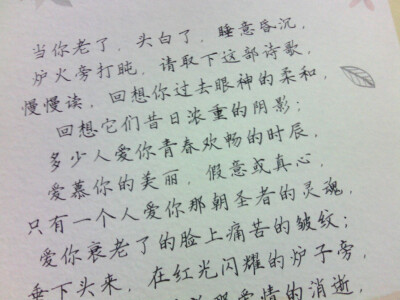 当你老了，头白了，睡意昏沉，
炉火旁打盹，请取下这部诗歌，
慢慢读，回想你过去眼神的柔和，
回想它们昔日浓重的阴影；
多少人爱你青春欢畅的时辰，
爱慕你的美丽，假意或真心，
只有一个人爱你那朝圣者的灵魂，
爱你衰老了的脸上痛苦的皱纹；
垂下头来，在红光闪耀的炉子旁，
爱情的消逝，